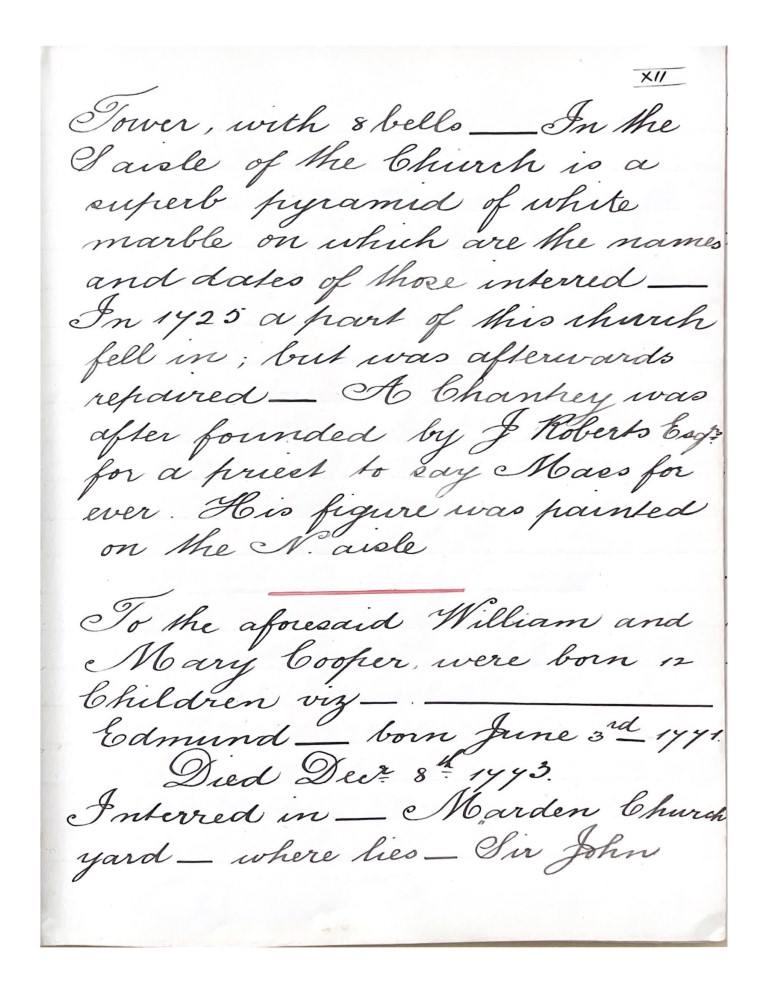 XII
Tower, with 8 bells — In the
S aisle of the Church is a
superb pyramid of white
marble on which are the names
and dates of those interred —
In 1725 a part of this church
fell in; but was afterwards
repaired — A Chantrey was
after founded by J Roberts Esqr.
for a priest to say Mass for
ever. His figure was painted
on the N. aisle
To the aforesaid William and
Mary Cooper, were born 12
Children viz — . —
Edmund — born June 3rd 1771.
Died Decr 8th 1773.
Interred in — Marden Church
yard — where lies — Sir John